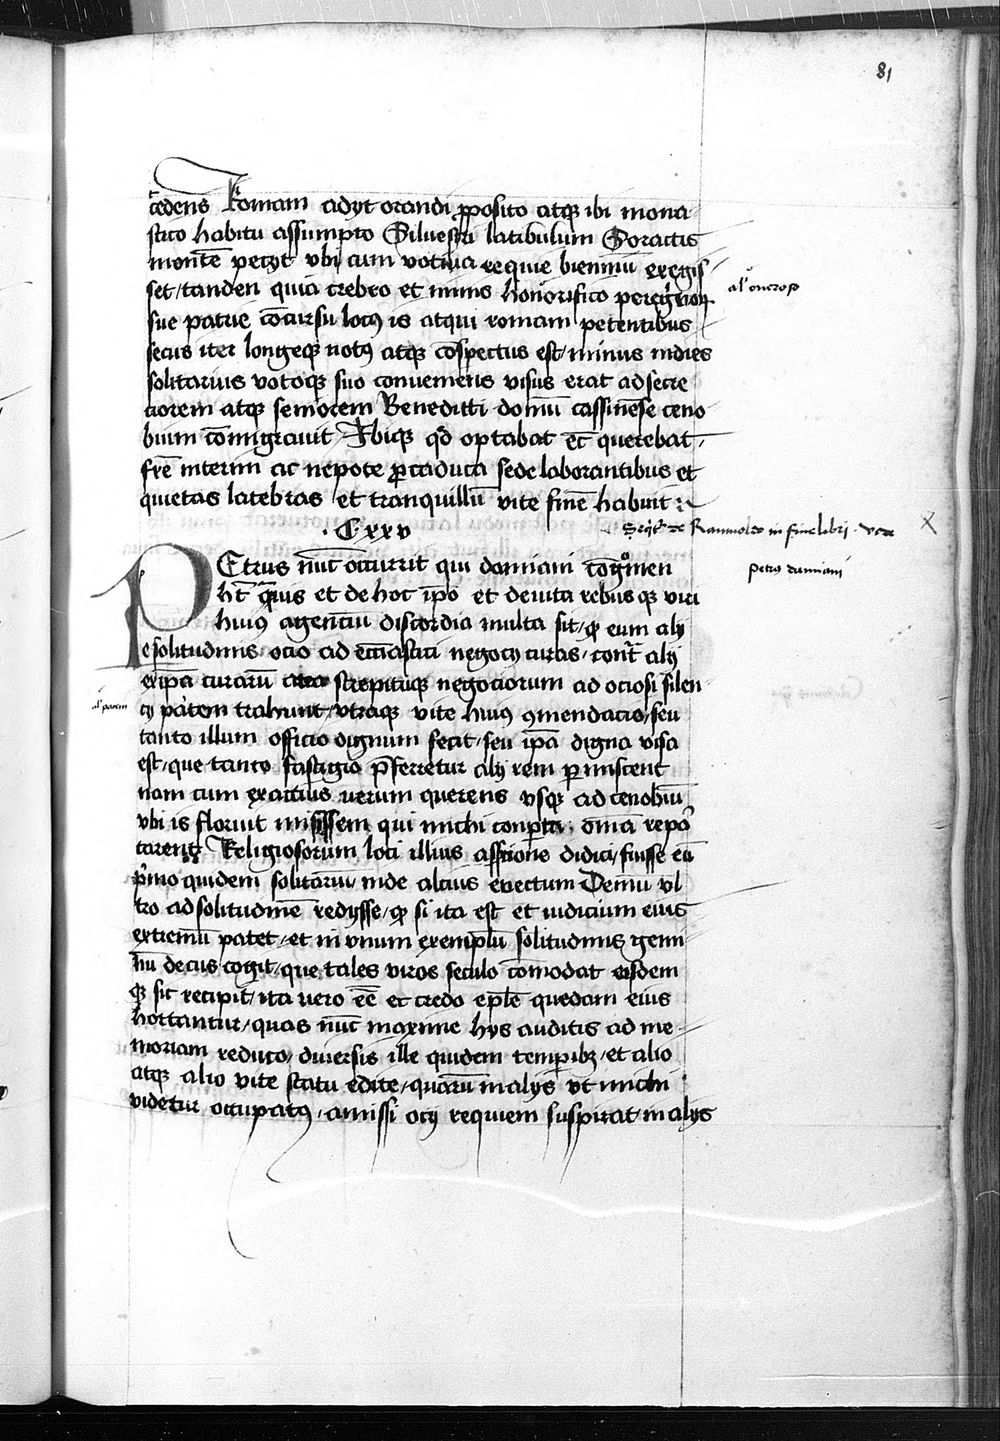 81
cedens Romam adyt orandi ꝓposito atqꝫ ibi mona
stico habitu assumpto Siluestri latibulum Soractis
montē petyt vbi cum votiua requie bienniū exegis
set / tanden quia crebro et nimis honorifico peregrͥnoꝝ
al' oneroso
sue patrie cōcursu locꝰ is atqui romam petentibus
secus iter longeqꝫ notꝰ atqꝫ cōspectus est / minus indies
solitarius votoqꝫ suo conueniens visus erat ad secre
ciorem atqꝫ seniorem Beneditti domū cassinēse ceno
bium cōmigrauit / Ibiqꝫ qđ optabat et querebat /
frē interim ac nepote ꝓ caduca sede laborantibus et
quietas latebras / et tranquillū vite finē habuit
· C · xxv
Script' de Ranuoldo in fine libri · vide
petrꝰ damiani
PEtrus nūc occurrit qui damiani cognomen
ht̄ quis et de hoc ip̄o et de vita rebus qꝫ viri
huiꝰ agentiū discordia multa sit / ꝙ eum alij
e solitudinis ocio ad eccl̄iastici negocij curas / cont̄ alij
ex ip̄a curarū strepituqꝫ negociorum ad ociosi silen
al' pacem
cij patem trahunt / vtraqꝫ vite huiꝰ ꝯmendacio / seu
tanto illum officio dignum fecit / seu ip̄a digna visa
est / que tanto fastigio p̄ferretur alij rem permiscent
nam cum exactius uerum querens vsqꝫ ad cenobiū
vbi is floruit misissem qui michi conperta omīa repo
tarent Religiosorum loci illius assertione didici / fuisse eū
pͥmo quidem solitariū / inde alcius euectum Demū vl
tro ad solitudinē redysse / ꝙ si ita est et iudicium eius
extremū patet / et in vnum exemplū solitudinis gemi
nū decus cogit / que tales viros seculo cōmodat eisdem
ꝙ sic recipit / ita uero eē et credo ep̄le quedam eius
hortantur / quas nūc maxime hys auditis ad me
moriam reduco / diuersis ille quidem temporibꝫ / et alio
atqꝫ alio vite statu edite / quarū in alys vt michi
videtur occupatꝰ / amissi ocij requiem suspirat / in alys